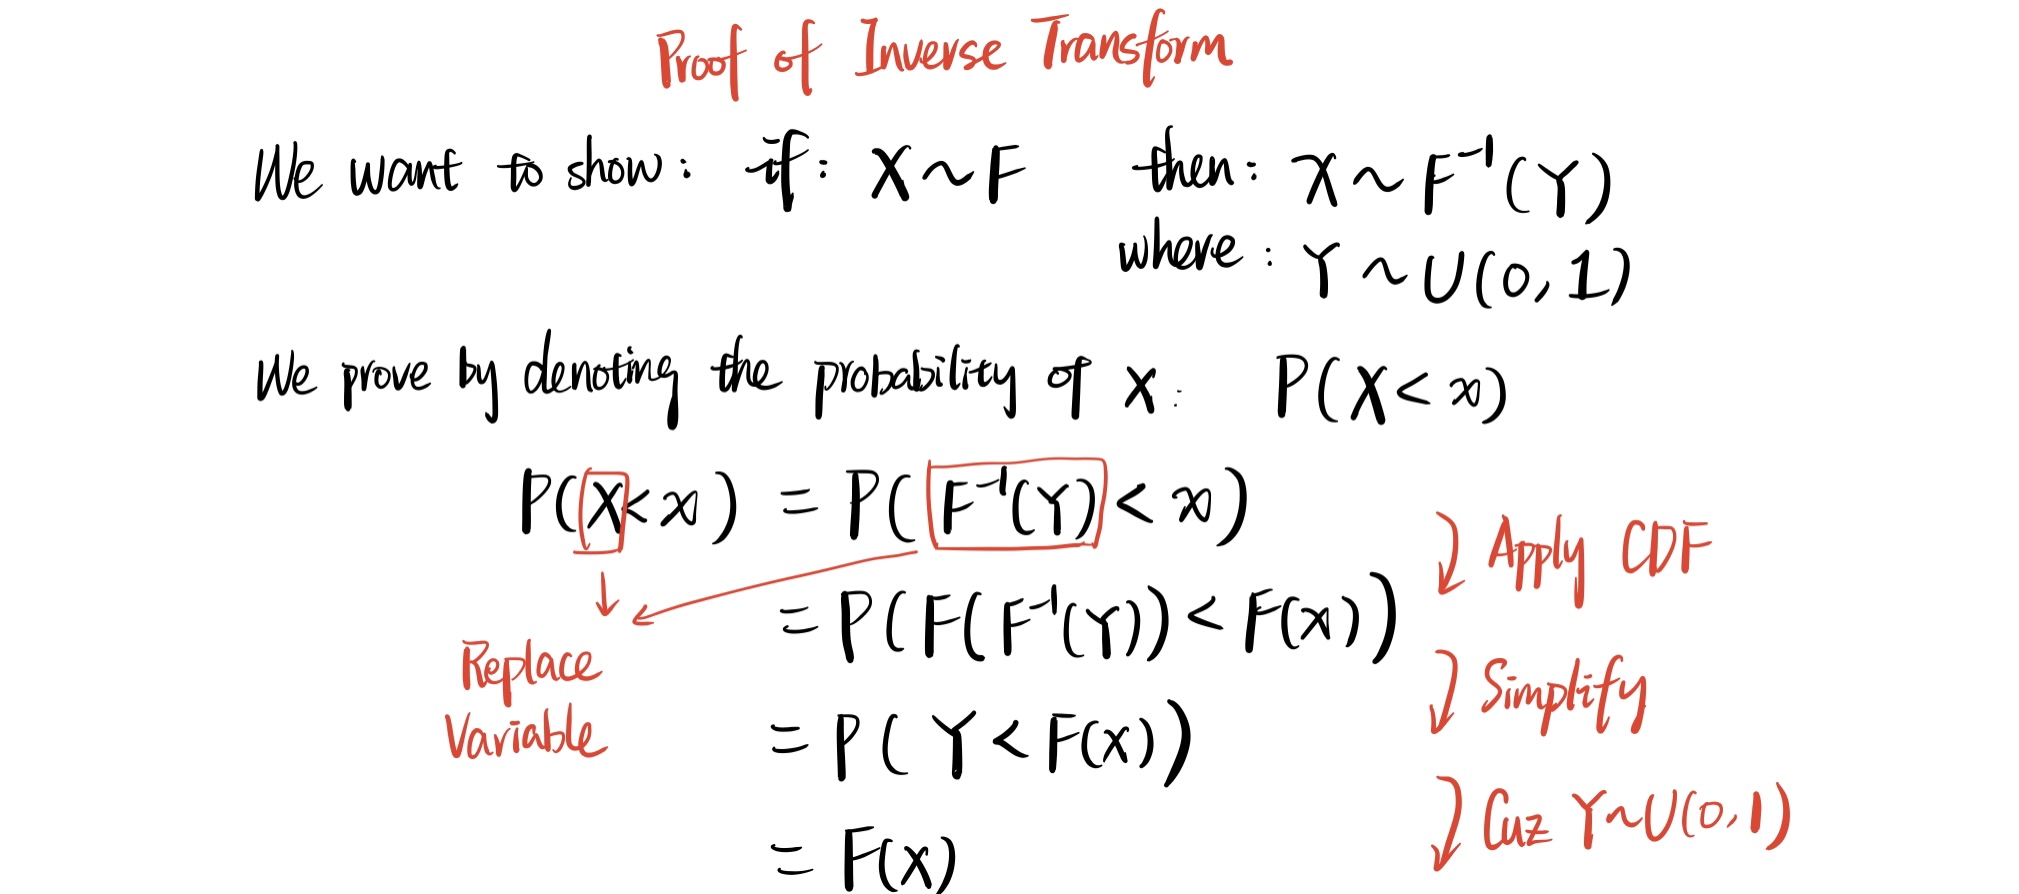 Proof of Inverse Transform
We want to show: if: X ~ F then: X ~ F⁻¹(Y)
where: Y ~ U(0, 1)
We prove by denoting the probability of X: P(X < x)
P(X < x) = P(F⁻¹(Y) < x)
Apply CDF
= P(F(F⁻¹(Y)) < F(x))
Replace
Variable
Simplify
= P(Y < F(x))
Cuz Y ~ U(0, 1)
= F(x)